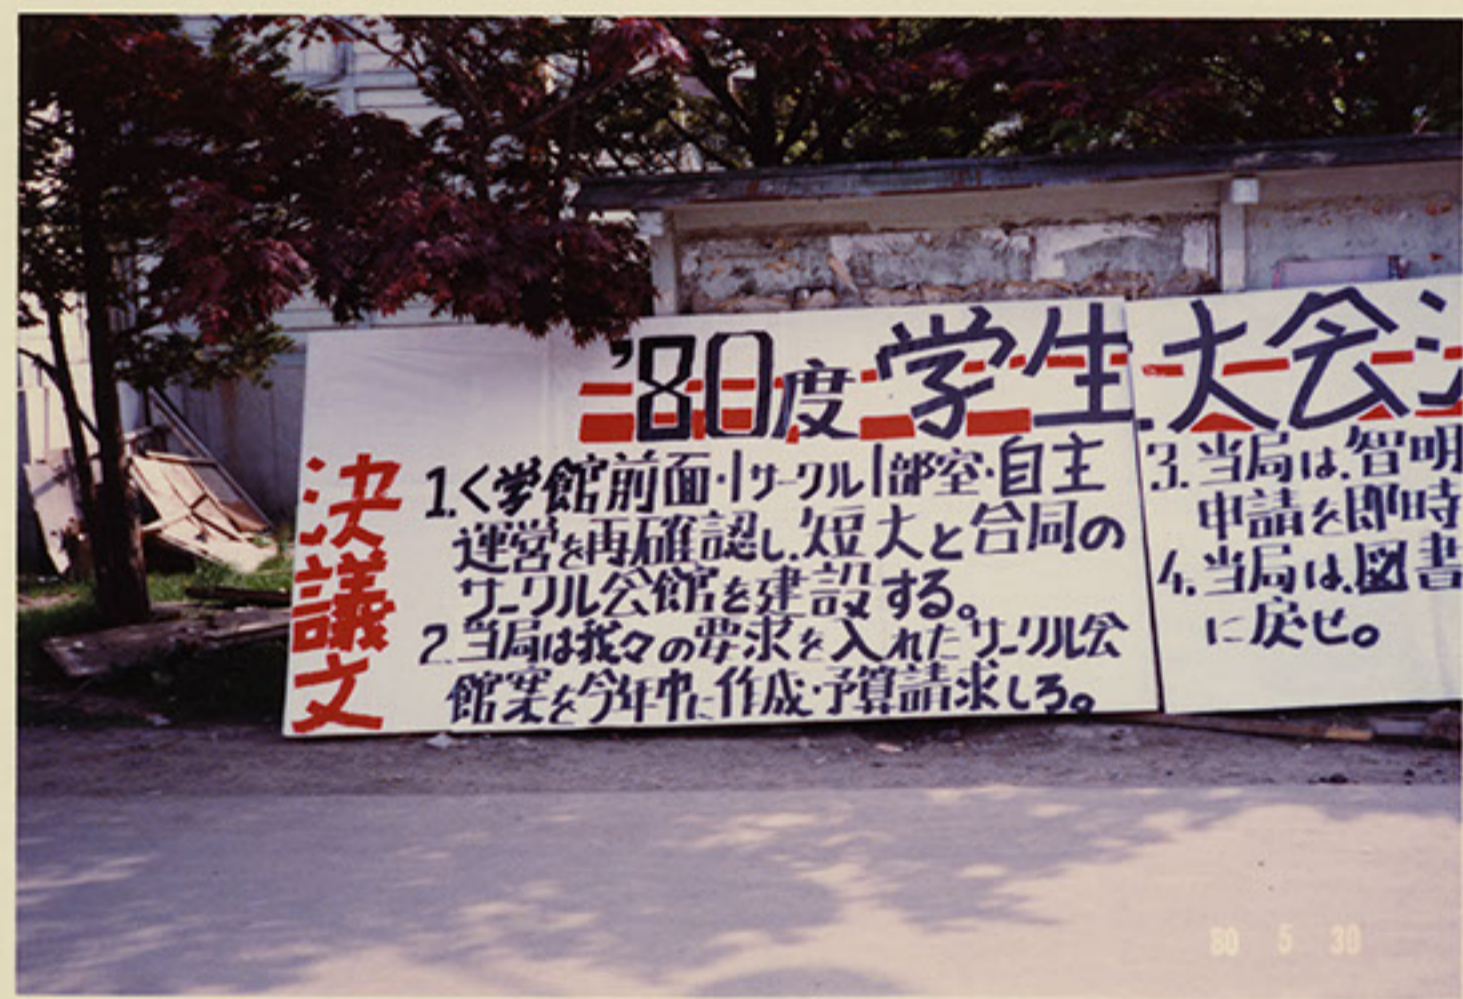 '80度学生大会決
決議文
1.く学館前面・1サークル1部室・自主
運営を再確認し、短大と合同の
サークル公館を建設する。
2.当局は我々の要求を入れたサークル公
館案を今年中に作成・予算請求しろ。
3.当局は、智明
申請を即時
4.当局は、図書
に戻せ。
80 5 30